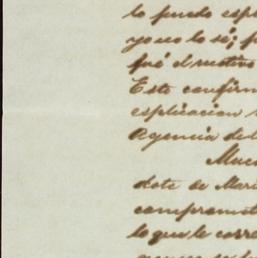 lo puedo esp
yo no lo sé; p
fué el motivo
Este confirm
esplicacion
Agencia del
Muc
dote de Mari
compromet
lo que le corre